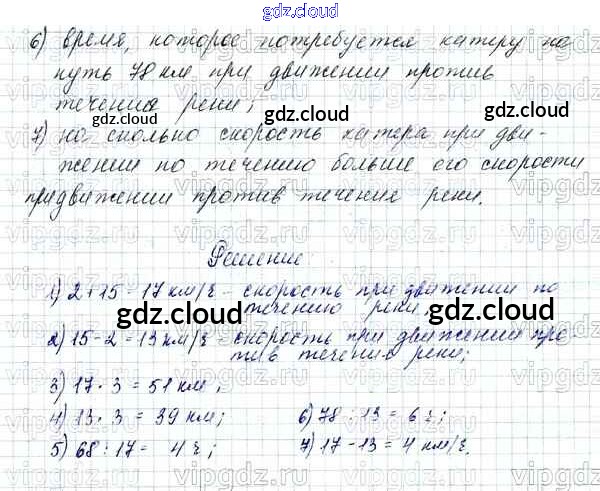 gdz.cloud
6) время, которое потребуется катеру на
путь 78 км при движении против
течения реки;
7) на сколько скорость катера при дви-
жении по течению больше его скорости
при движении против течения реки.
Решение:
1) 2+15=17 км/ч - скорость при движении по
течению реки;
2) 15-2=13 км/ч - скорость при движении про-
тив течения реки;
3) 17·3=51 км;
4) 13·3=39 км; 6) 78:13=6 ч;
5) 68:17= 4 ч; 7) 17-13=4 км/ч.